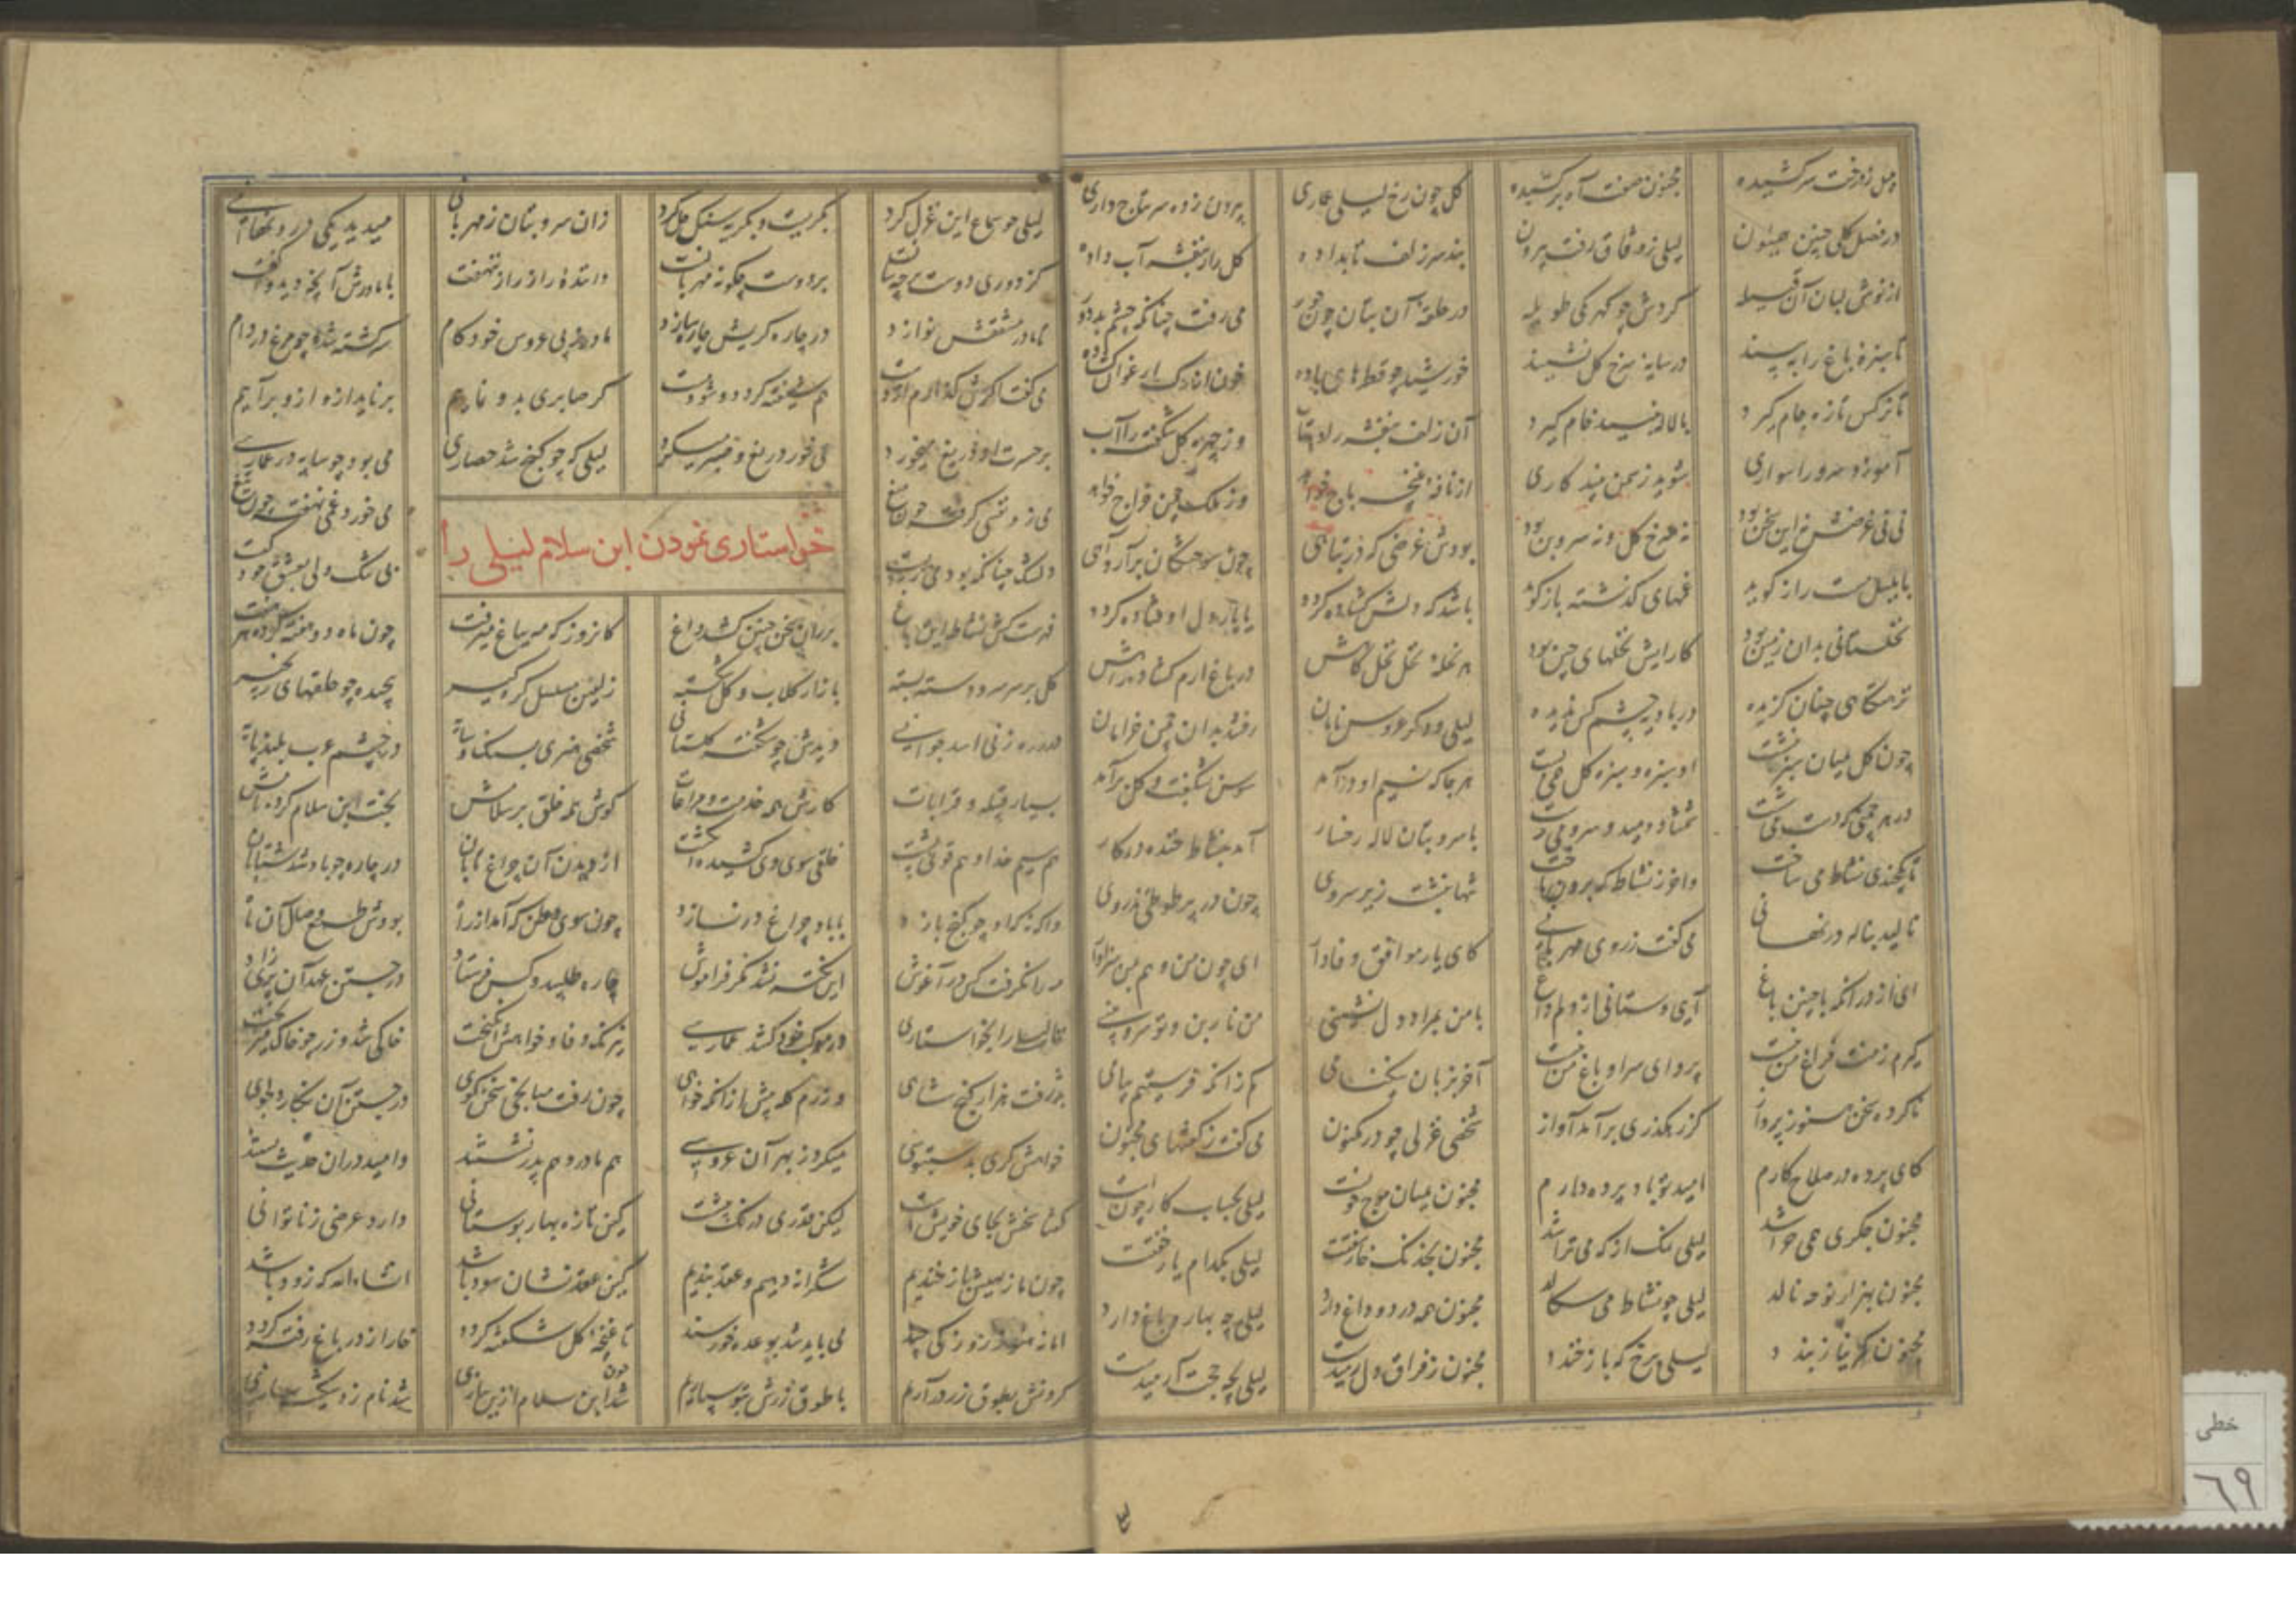 بلبل ز درخت سرکشیده مجنون صفت آه برکشیده گل چون رخ لیلی عماری بیرون زده سر بتاج داری
در فصل گلی چنین همایون لیلی ز وثاق رفت بیرون بند سر زلف تاب داده گل را ز بنفشه آب داده
از نوش لبان آن قبیله گردش چو گهر یکی طویله در حلقه آن بتان چون حور می رفت چنانکه چشم بد دور
تا سبزه باغ را به بیند در سایه سرخ گل نشیند خورشید چو قطرهای باده خون ارغوان
تا نرگس تازه جام گیرد با لاله نبید خام گیرد آن زلف بنفشه را وز چهره گل شکفته را آب
آموزد سرو را سواری شوید ز سمن سپید کاری از نافه غنچه باج خواهد وز ملک چمن خراج خواهد
نی نی غرضش نه این سخن بود نه سرخ گل و نه سرو بن بود بودش غرضی که در پناهی چون سوختگان برآرد آهی
با بلبل مست راز گوید غمهای گذشته باز گوید باشد که دلش گشاده گردد دل اوفتاده گردد
نخلستانی بدان زمین بود کارایش نخلهای چین بود در باغ ارم گشاده راهش
نزهتگاهی چنان گزیده در بادیه چشم کس ندیده لیلی و دگر عروس نامان رفتند بدان چمن خرامان
چون گل میان سبزه بنشست او سبزه و سبزه گل همی بست هر جا که نسیم او درآمد سوسن بشکفت و گل برآمد
در هر چمنی که دست می شست شمشاد دمید و سرو می رست با سرو بتان لاله رخسار آمد بنشاط خنده در کار
تا یکچندی نشاط می ساخت واخر ز نشاط که برون تاخت تنها بنشست زیر سروی چون در پر طوطئی تذروی
نالید بناله در نهانی می گفت ز روی مهربانی کای یار موافق و وفادار ای چون من و هم بمن سزاوار
ای از در آنکه با چنین باغ آیی و ستانی از دلم داغ با من بمراد دل نشینی من نارون و تو سرو بینی
گیرم ز منت فراغ من نیست پروای سرا و باغ من نیست آخر بزبان نیکنامی کم زانکه فرستیم پیامی
ناکرده سخن هنوز پرواز کز رهگذری برآمد آواز شخصی غزلی چو در مکنون می گفت ز گفتهای مجنون
کای پرده در صلاح کارم امید تو باد پرده دارم مجنون بمیان موج خونست لیلی بحساب کار چونست
مجنون جگری همی خراشد لیلی نمک از که می تراشد مجنون بخدنگ خار سفتست لیلی بکدام یار خفتست
مجنون بهزار نوحه نالد لیلی چو نشاط می سگالد مجنون همه درد و داغ دارد لیلی چو بهار و باغ دارد
مجنون کمر نیاز بندد لیلی برخ که باز خندد مجنون ز فراق دل رمیدست لیلی بچه حجت آرمیدست
لیلی چو سماع این غزل کرد بگریست و بگریه سنگ حل کرد زان سرو بتان ز مهربانی میدید یکی در و نهانی
کز دوری دوست بر چه سانست بر دوست چگونه مهربانست داننده راز راز ننهفت با مادرش آنچه دید وا گفت
تا مادر مشفقش نوازد در چاره گریش چاره سازد مادر ز پی عروس خودکام سرگشته شده چو مرغ در دام
می گفت گرش گذارم از دست هم شیفته گردد و شود مست گر صابری بدو نمایم برناید ازو ازو برآیم
بر حسرت او دریغ میخورد می خورد دریغ و صبر میکرد لیلی که چو گنج شد حصاری می بود چو سایه در عماری
می زد نفسی گرفته چون میغ می خورد غمی نهفته چون تیغ
خواستاری نمودن ابن سلام لیلی را
دلتنگ چنانکه بود می زیست
فهرست کش نشاط این باغ بر ران سخن چنین کشد داغ کانروز که مه بباغ میرفت چون ماه دو هفته کرده هر هفت
گل بر سر سرو دسته بسته بازار گلاب و گل شکسته زلفین مسلسل گره گیر پیچیده چو حلقهای زنجیر
در ره ز بنی اسد جوانی دیدش چو شکفته گلستانی شخصی هنری بسنگ و سایه در چشم عرب بلند پایه
بسیار قبیله و قرابات کارش همه خدمت و مراعات گوش همه خلق بر سلامش بخت ابن سلام کرده نامش
هم سیم خدا و هم قوی پشت خلقی سوی وی کشیده انگشت از دیدن آن چراغ تابان در چاره چو باد شد شتابان
واگه نه که او چو گنج بازد با باد چراغ در نسازد چون سوی وطن که آمد از راه بودش طمع وصال آن ماه
مه را نگرفت کس در آغوش این نکته نشد مگر فراموش چاره طلبید و کس فرستاد در جستن عهد آن پری زاد
تا لیلی را بخواستاری در موکب خود کشد عماری نیرنگ وفا و خواهش انگیخت خاکی شد و زر چو خاک میریخت
پذرفت هزار گنج شاهی وز رم گله بیش از آنکه خواهی چون رفت میانجی سخن گوی در جستن آن نگار دلجوی
خواهش گری بدستبوسی میکرد ز بهر آن عروسی هم مادر و هم پدر نشستند وامید در آن حدیث بستند
گفتا سخنش بجای خویش است لیکن قدری درنگ پیش است کین تازه بهار بوستانی دارد عرضی ز ناتوانی
چون ما ز بهیش باز خندیم شکرانه دهیم و عقد بندیم کین عقد نشان سود باشد انشاءالله که زود باشد
اما نه هنوز روزکی چند می باید شد بوعده خرسند تا غنچه گل شکفته گردد خار از در باغ رفته گردد
گردنش بطوق زر درآریم با طوق زرش بتو سپاریم چون شد ابن سلام ازین شد نام زد
خطی
٦٩